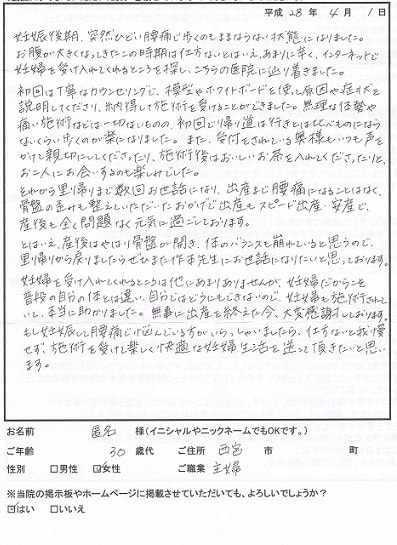 平成 28 年 4 月 1 日
妊娠後期、突然ひどい腰痛で歩くのもままならない状態になりました。
お腹が大きくなってきたこの時期は仕方ないとはいえ、あまりに辛く、インターネットで
妊婦を受け入れてくれるところを探し、こちらの医院に辿り着きました。
初回は丁寧なカウンセリングで、模型やホワイトボードを使し原因や症状を
説明してくださり、納得して施術を受けることができました。無理な体勢や
痛い施術などは一切ないものの、初回で帰り道は行きとは比べものになら
ないくらい歩くのが楽になりました。また、受付をされている奥様もいつも声を
かけて親切にしてくださったり、施術後はおいしいお茶を入れてくださったりと、
お二人にお会いするのも楽しみでした。
それから里帰りまで数回お世話になり、出産まで腰痛になることはなく、
骨盤の歪みも整えていただいたおかげで出産もスピード出産・安産で、
産後も全く問題なく元気に過ごしております。
とはいえ、産後はやはり骨盤が開き、体のバランスも崩れていると思うので、
里帰りから戻りましたらぜひまた作本先生にお世話になりたいと思っております。
妊婦を受け入れてくれるところは他にあまりありませんが、妊婦だからこそ
普段の自分の体とは違い、自分ではどうにもできないので、妊婦も施術されて
いて、本当に助かりました。無事に出産を終えた今、大変感謝しております。
もし妊娠して腰痛で悩んでいる方がいらっしゃいましたら、仕方ないと我慢
せず、施術を受けて楽しく快適な妊婦生活を送って頂きたいと思い
ます。
お名前 匿名 様(イニシャルやニックネームでもOKです。)
ご年齢 30 歳代 ご住所 西宮 市 町
性別 □男性 ☑女性 ご職業 主婦
※当院の掲示板やホームページに掲載させていただいても、よろしいでしょうか?
☑はい □いいえ